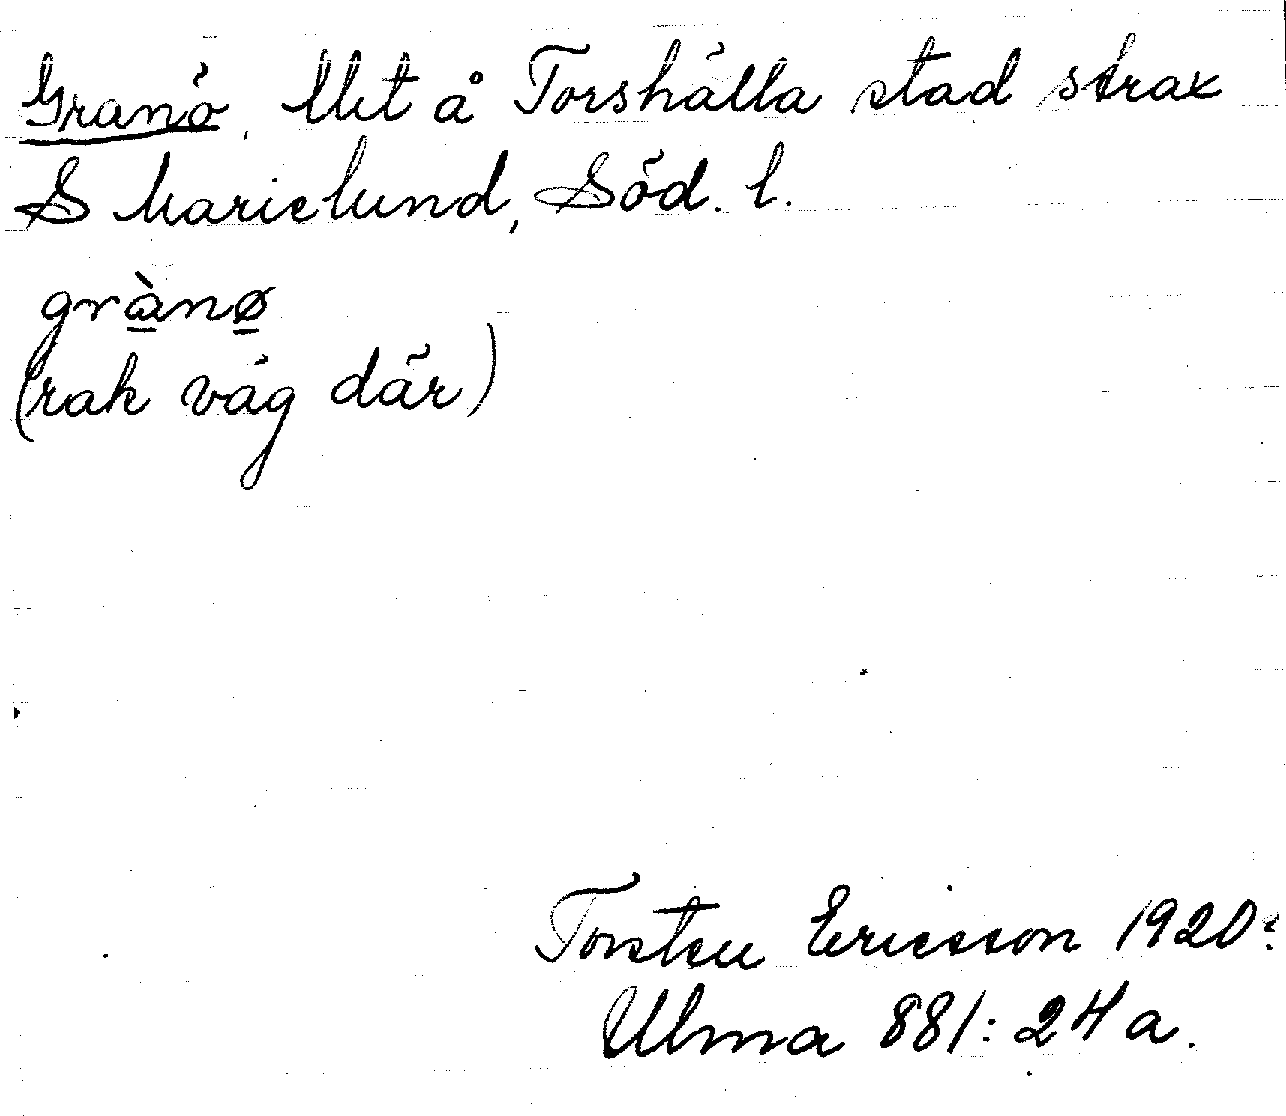 Granö. Utt å Torshälla stad strax
S Marielund, Söd. l.
grànø
(rak väg där)
Torsten Ericsson 1920:
Ulma 881: 24 a.